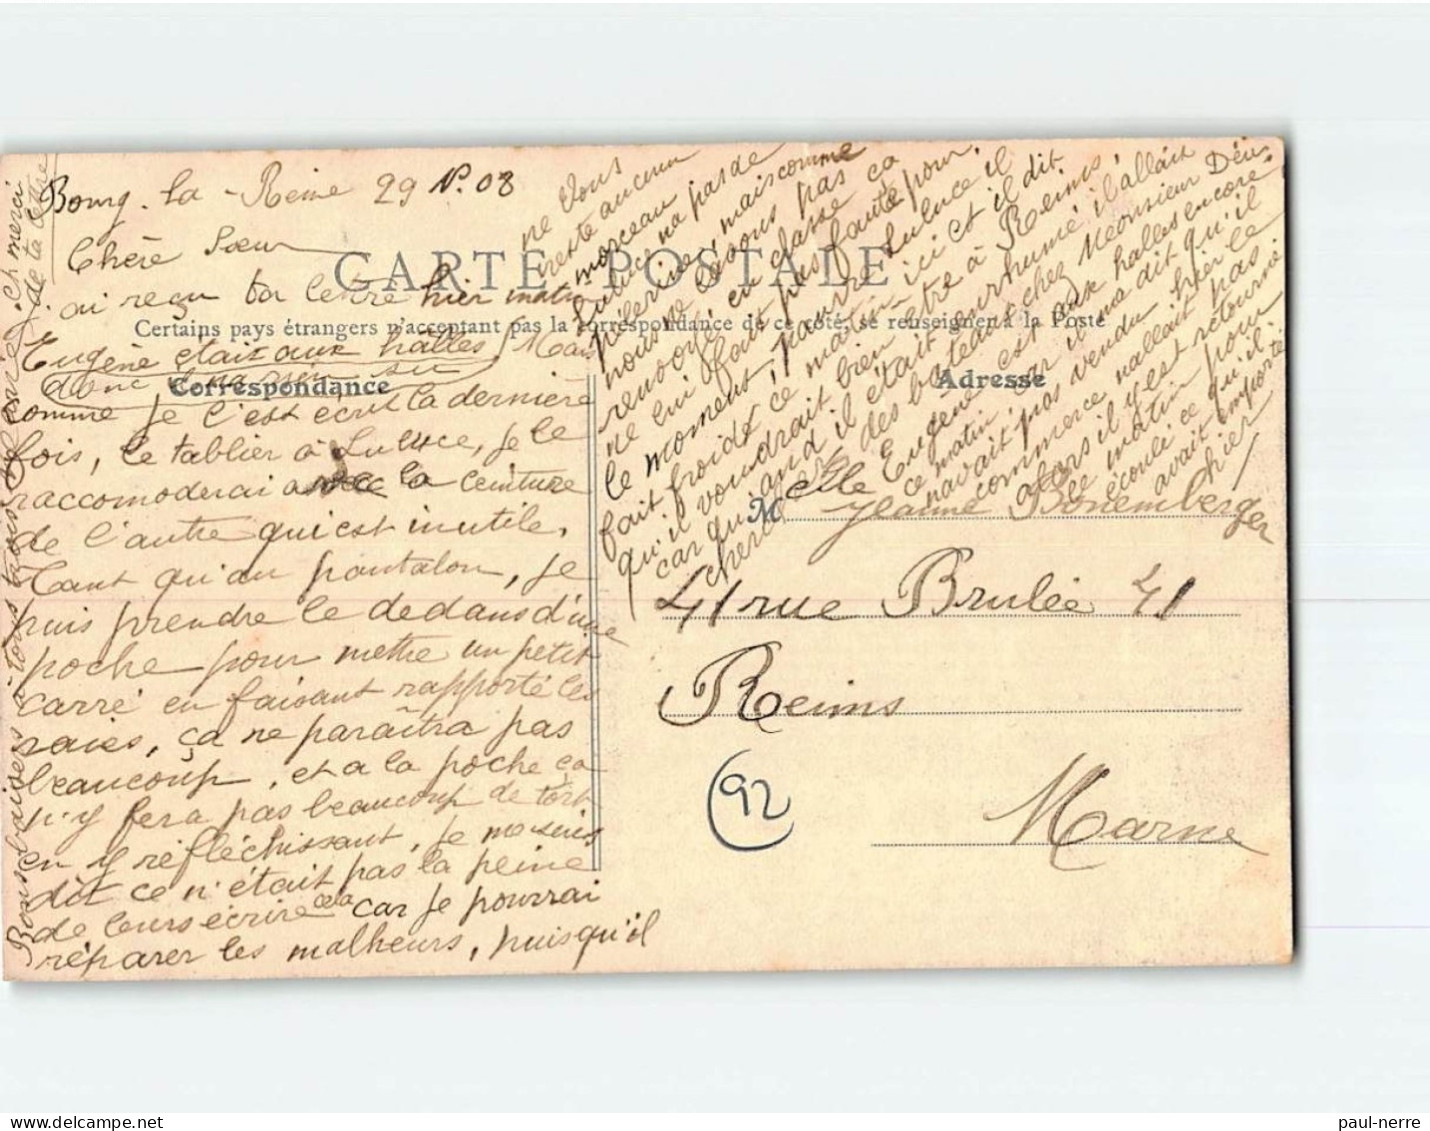 Bourg-la-Reine 29 N. 08
Chère Sœur
CARTE POSTALE
J'ai reçu ta lettre hier matin
Certains pays étrangers n'acceptant pas la correspondance de ce côté, se renseigner à la Poste
Eugène était aux halles, Mais
donc
Correspondance
Adresse
comme je l'est écrit la dernière
fois, le tablier à Luluce, je le
raccomoderai avec la ceinture
de l'autre qui est inutile,
Tant qu'au pantalon, je
puis prendre le dedans d'une
poche pour mettre un petit
carré en faisant rapporté les
raies, ça ne paraîtra pas
beaucoup, et a la poche ça
n'y fera pas beaucoup de tort
en y réfléchissant, je me suis
dit ce n'était pas la peine
de leurs écrire cela car je pourrai
réparer les malheurs, puisqu'il
ne vous
reste aucun
morceau
Luluce na pas de
pélerine, mais comme
nous ne lavons pas ça
renvoyé en classe
ne lui fait pas faute pour
le moment, pauvre Luluce il
fait froid ce matin ici et il dit
qu'il voudrait bien être à Reims,
car quand il était enrhumé il allait
chercher des bateaux chez Monsieur Déu.
Eugène est aux halles encore
ce matin, car il ma dit qu'il
navait pas vendu hier le
commerce nallait pas
alors il y est retourné
le matin pour
écouli ce qu'il
avait emporté
hier
Melle Jeanne Bonemberger
41 rue Brulée 41
Reims
Marne
92
Bons baisers à tous tous
Ah merci
de ta lettre
paul-nerre